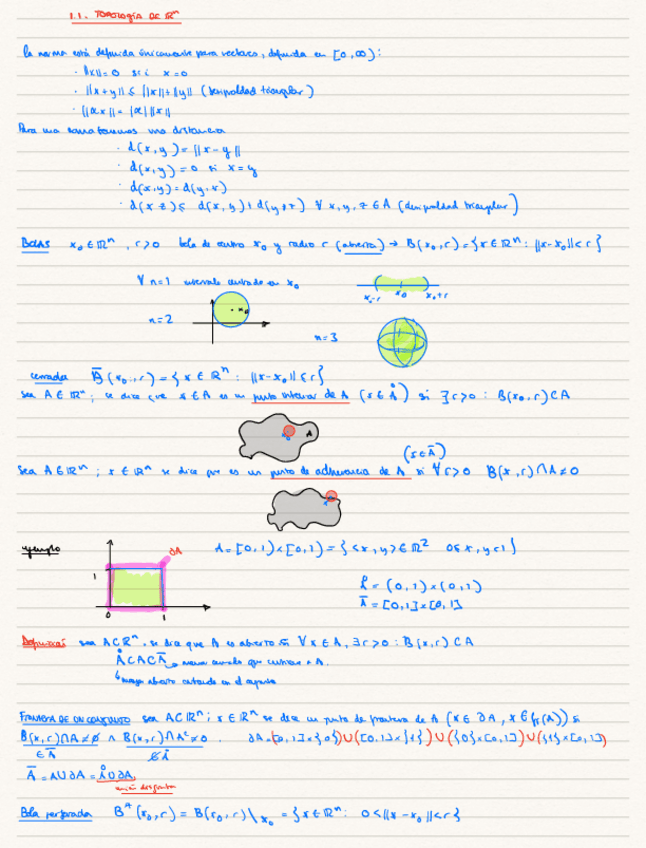 1.1. TOPOLOGÍA DE ℝⁿ
la norma está definida únicamente para vectores, definida en [0,∞):
· ||x||=0 sii x=0
· ||x+y|| ≤ ||x||+||y|| (desigualdad triangular)
· ||αx|| = |α| ||x||
Para una norma tenemos una distancia
· d(x,y) = ||x-y||
· d(x,y) = 0 si x=y
· d(x,y) = d(y,x)
· d(x,z) ≤ d(x,y)+d(y,z) ∀ x,y,z ∈ A (desigualdad triangular)
BOLAS x₀ ∈ ℝⁿ, r>0 bola de centro x₀ y radio r (abierta) → B(x₀,r) = {x ∈ ℝⁿ: ||x-x₀|| < r}
∀ n=1 intervalo centrado en x₀
x₀-r x₀ x₀+r
n=2
x₀
n=3
cerrada B̅(x₀,r) = {x ∈ ℝⁿ: ||x-x₀|| ≤ r}
sea A ∈ ℝⁿ; se dice que x ∈ A es un punto interior de A (x ∈ Å) si ∃ r>0 : B(x₀,r) ⊂ A
x₀ A
(x ∈ A̅)
sea A ∈ ℝⁿ; x ∈ ℝⁿ se dice que es un punto de adherencia de A si ∀ r>0 B(x,r) ∩ A ≠ ∅
x
ejemplo
∂A
1
0 1
A = [0,1)×[0,1) = {<x,y> ∈ ℝ² 0≤x,y<1}
Å = (0,1)×(0,1)
A̅ = [0,1]×[0,1]
sea A ⊂ ℝⁿ, se dice que A es abierto si ∀ x ∈ A, ∃ r>0 : B(x,r) ⊂ A
Å ⊂ A ⊂ A̅ → menor cerrado que contiene a A.
↳ mayor abierto contenido en el
FRONTERA DE UN CONJUNTO sea A ⊂ ℝⁿ; x ∈ ℝⁿ se dice un punto de frontera de A (x ∈ ∂A, x ∈ fr(A)) si
B(x,r) ∩ A ≠ ∅ ∧ B(x,r) ∩ Aᶜ ≠ ∅. ∂A = ([0,1]×{0}) ∪ ([0,1]×{1}) ∪ ({0}×[0,1]) ∪ ({1}×[0,1])
∈ A̅ ∉ Å
A̅ = A ∪ ∂A = Å ∪ ∂A
unión disjunta
Bola perforada B*(x₀,r) = B(x₀,r) \ x₀ = {x ∈ ℝⁿ: 0 < ||x-x₀|| < r}